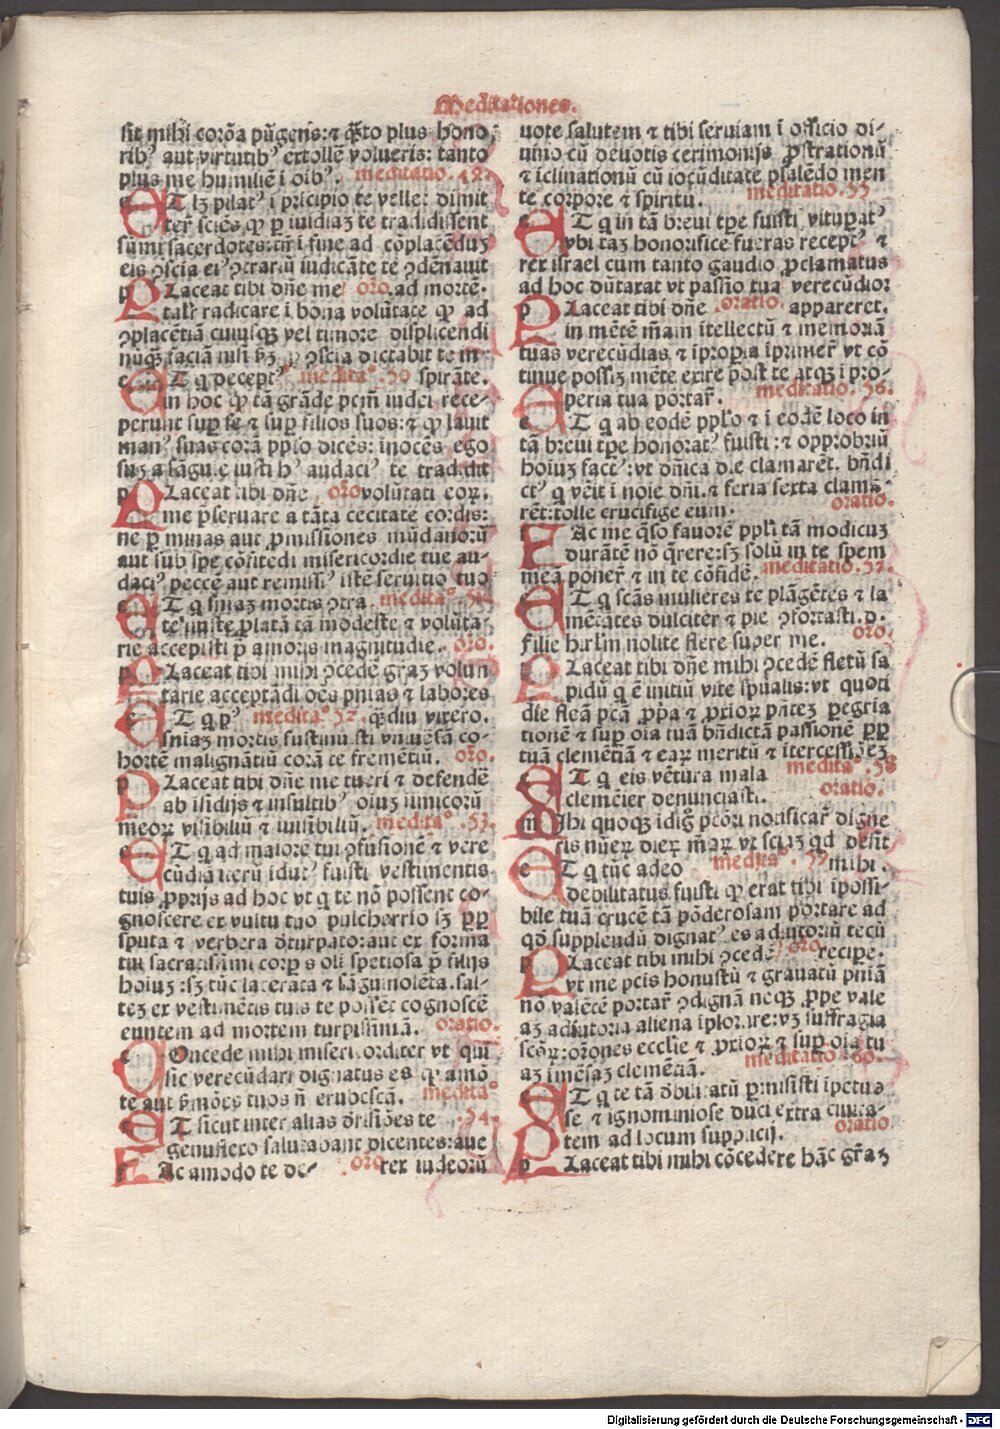 Meditationes.
sit mihi corōa pūgens: ⁊ q̄to plus hono⸗
ribꝰ aut virtutibꝰ extollē volueris: tanto
plus me humiliē i oībꝰ. meditatio. 49.
ET lꝫ pilatꝰ i pricipio te vellet dimit
ter̄ sciēs ꝙ ꝑ iuidiaꝫ te tradidissent
sūmi sacerdotes: tn̄ i fine ad cōplacēduꝫ
eis ꝯscia eiꝰ ꝯtrariū iudicāte te ꝯdēnauit
PLaceat tibi dn̄e me oro. ad mortē.
talit̄ radicare i bona volūtate ꝙ ad
ꝯplacētiā cuiusqꝫ vel timore displicendi
nūqꝫ faciā nisi ꝯscia dictabit te in⸗
ET q deceptꝰ medita°. 50 spirāte.
in hoc ꝙ tā grāde pctm̄ iudei rece⸗
perunt suꝑ se ⁊ suꝑ filios suos: ⁊ ꝙ lauit
manꝰ suas corā pplo dicēs: inocēs ego
suꝫ a sāgu.e iusti hꝰ audaciꝰ te tradidit
PLaceat tibi dn̄e oro volūtati eoꝝ.
me p̄seruare a tāta cecitate cordis:
ne ꝑ minas aut ꝓmissiones mūdanorū
aut sub spe cōfitēdi misericordie tue au⸗
daciꝰ peccē aut remissiꝰ istē seruitio tuo
ET q sniaꝫ mortis ꝯtra medita°. 51.
te iniuste ꝓlatā tā modeste ⁊ volūta⸗
rie accepisti p̄ amoris magnitudie. oro.
PLaceat tibi mihi ꝯcedē graꝫ volun
tarie acceptādi oēs pnias ⁊ labores
ET q pꝰ medita° 52. q̄diu vixero.
sniaꝫ mortis sustinuisti vniuersā co⸗
hortē malignātiū corā te fremētiū. oro.
PLaceat tibi dn̄e me tueri ⁊ defendē
ab isidijs ⁊ insultibꝰ oiuꝫ inimicorū
meoꝝ visibiliū ⁊ iuisibiliū. medita°. 53.
ET q ad maiorē tui ꝯfusionē ⁊ vere
cūdiā iterū idutꝰ fuisti vestimentis
tuis ꝓprijs ad hoc vt q te nō possent co⸗
gnoscere ex vultu tuo pulcherrio sꝫ ꝓꝑ
sputa ⁊ verbera d̄turpato: aut ex forma
tui sacratissimi corꝑs oli speciosa p̄ filijs
hoiuꝫ: sꝫ tūc lacerata ⁊ sāguinolēta. sal⸗
teꝫ ex vestimētis tuis te possēt cognoscē
euntem ad mortem turpissimā. oratio.
COncede mihi misericorditer vt qui
sic verecūdari dignatus es ꝙ amō
te aut s̄mōes tuos n̄ erubescā. medita°
ET sicut inter alias d̄risiōes te .54.
genuflexo salutabant dicentes: aue
FAc amodo te de⸗ oro rex iudeorū
uote salutem ⁊ tibi seruiam i officio di⸗
uino cū deuotis cerimonijs ꝓstrationū
⁊ iclinationū cū iocūditate psalēdo men
te corpore ⁊ spiritu. meditatio. 55
ET q in tā breui tpe fuisti vituꝑatꝰ
vbi taꝫ honorifice fueras receptꝰ ⁊
rex israel cum tanto gaudio ꝓclamatus
ad hoc dūtaxat vt passio tua verecūdior
PLaceat tibi dn̄e oratio. appareret.
in mētē meam itellectū ⁊ memoriā
tuas verecūdias ⁊ iꝓpria iprimer̄ vt cō
tinue possiꝫ mēte exire post te atqꝫ iꝓ⸗
peria tua portar̄. meditatio. 56.
ET q ab eodē pplo ⁊ i eodē loco in
tā breui tpe honoratꝰ fuisti: ⁊ opprobriū
hoiuꝫ factꝰ: vt dn̄ica die clamarēt. bn̄di
ctꝰ q vēit i noie dn̄i. ⁊ feria sexta clama⸗
rēt: tolle crucifige eum. oratio.
FAc me q̄so fauorē ppli tā modicuꝫ
durātē nō q̄rere: sꝫ solū in te spem
meā poner̄ ⁊ in te cōfidē. meditatio. 57.
ET q scās mulieres te plāgētes ⁊ la
mētātes dulciter ⁊ pie ꝯfortasti. d.
filie hirlm nolite flere super me. oro.
PLaceat tibi dn̄e mihi ꝯcedē fletū sa
pidū q ē initiū vite spūalis: vt quoti
die fleā pctā ꝓpa ⁊ ꝓxioꝝ pariteꝫ ꝑegria
tionē ⁊ suꝑ oīa tuā bn̄dictā passionē ꝓꝑ
tuā clemētiā ⁊ eaꝝ meritū ⁊ itercessiōeꝫ
ET q eis vētura mala medita°. 58
clemēter denunciasti. oratio.
MIhi quoqꝫ idig° pctōri notificar̄ digne
ris nūeꝝ dieꝝ meoꝝ vt sciaꝫ qd̄ desit
ET q tūc adeo medita°. 59 mihi.
debilitatus fuisti ꝙ erat tibi ipossi⸗
bile tuā crucē tā pōderosam portare ad
qd̄ supplendū dignatꝰ es adiutoriū tecū
PLaceat tibi mihi ꝯcedē oro recipe.
vt me pctis honustū ⁊ grauatū pniā
nō valētē portar̄ ꝯdignā neqꝫ ꝓpe vale
aꝫ adiutoria aliena iplorare: vꝫ suffragia
scōꝝ: orōnes ecclie ⁊ ꝓxioꝝ ⁊ suꝑ oīa tu
aꝫ imēsaꝫ clemētiā. meditatio. 60.
ET q te tā d̄bilitatū ꝑmisisti ipetuo
se ⁊ ignominiose duci extra ciuita⸗
tem ad locum supplicij. oratio
PLaceat tibi mihi cōcedere hāc gr̄aꝫ
Digitalisierung gefördert durch die Deutsche Forschungsgemeinschaft - DFG